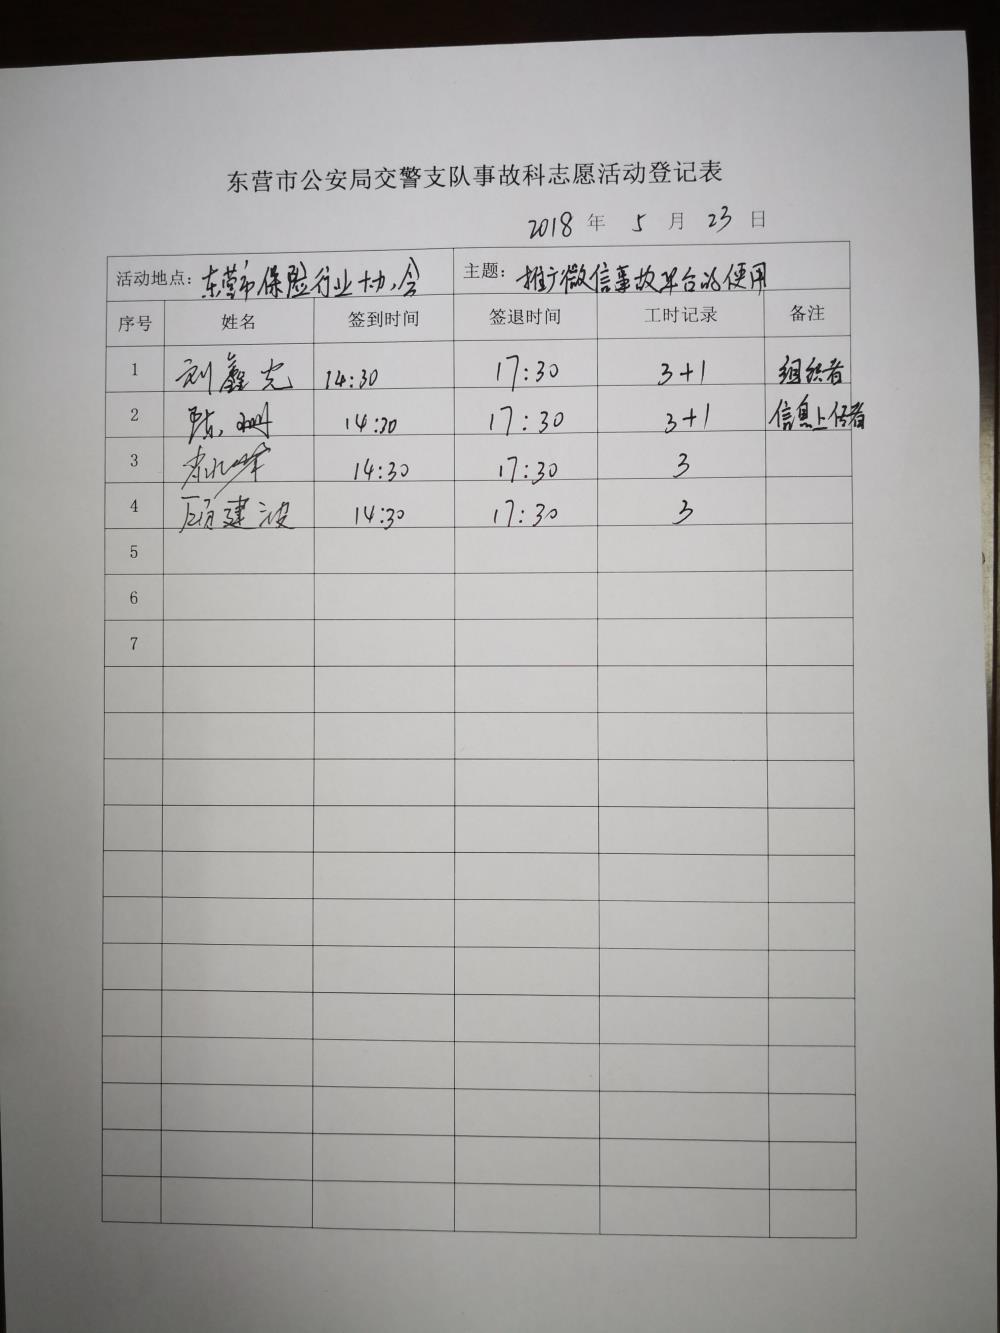 东营市公安局交警支队事故科志愿活动登记表
2018 年 5 月 23 日
活动地点：东营市保险行业协会 主题：推广微信事故平台的使用
序号 姓名 签到时间 签退时间 工时记录 备注
1 刘鑫光 14:30 17:30 3+1 组织者
2 陈珊 14:30 17:30 3+1 信息上传者
3 14:30 17:30 3
4 顾建波 14:30 17:30 3
5
6
7